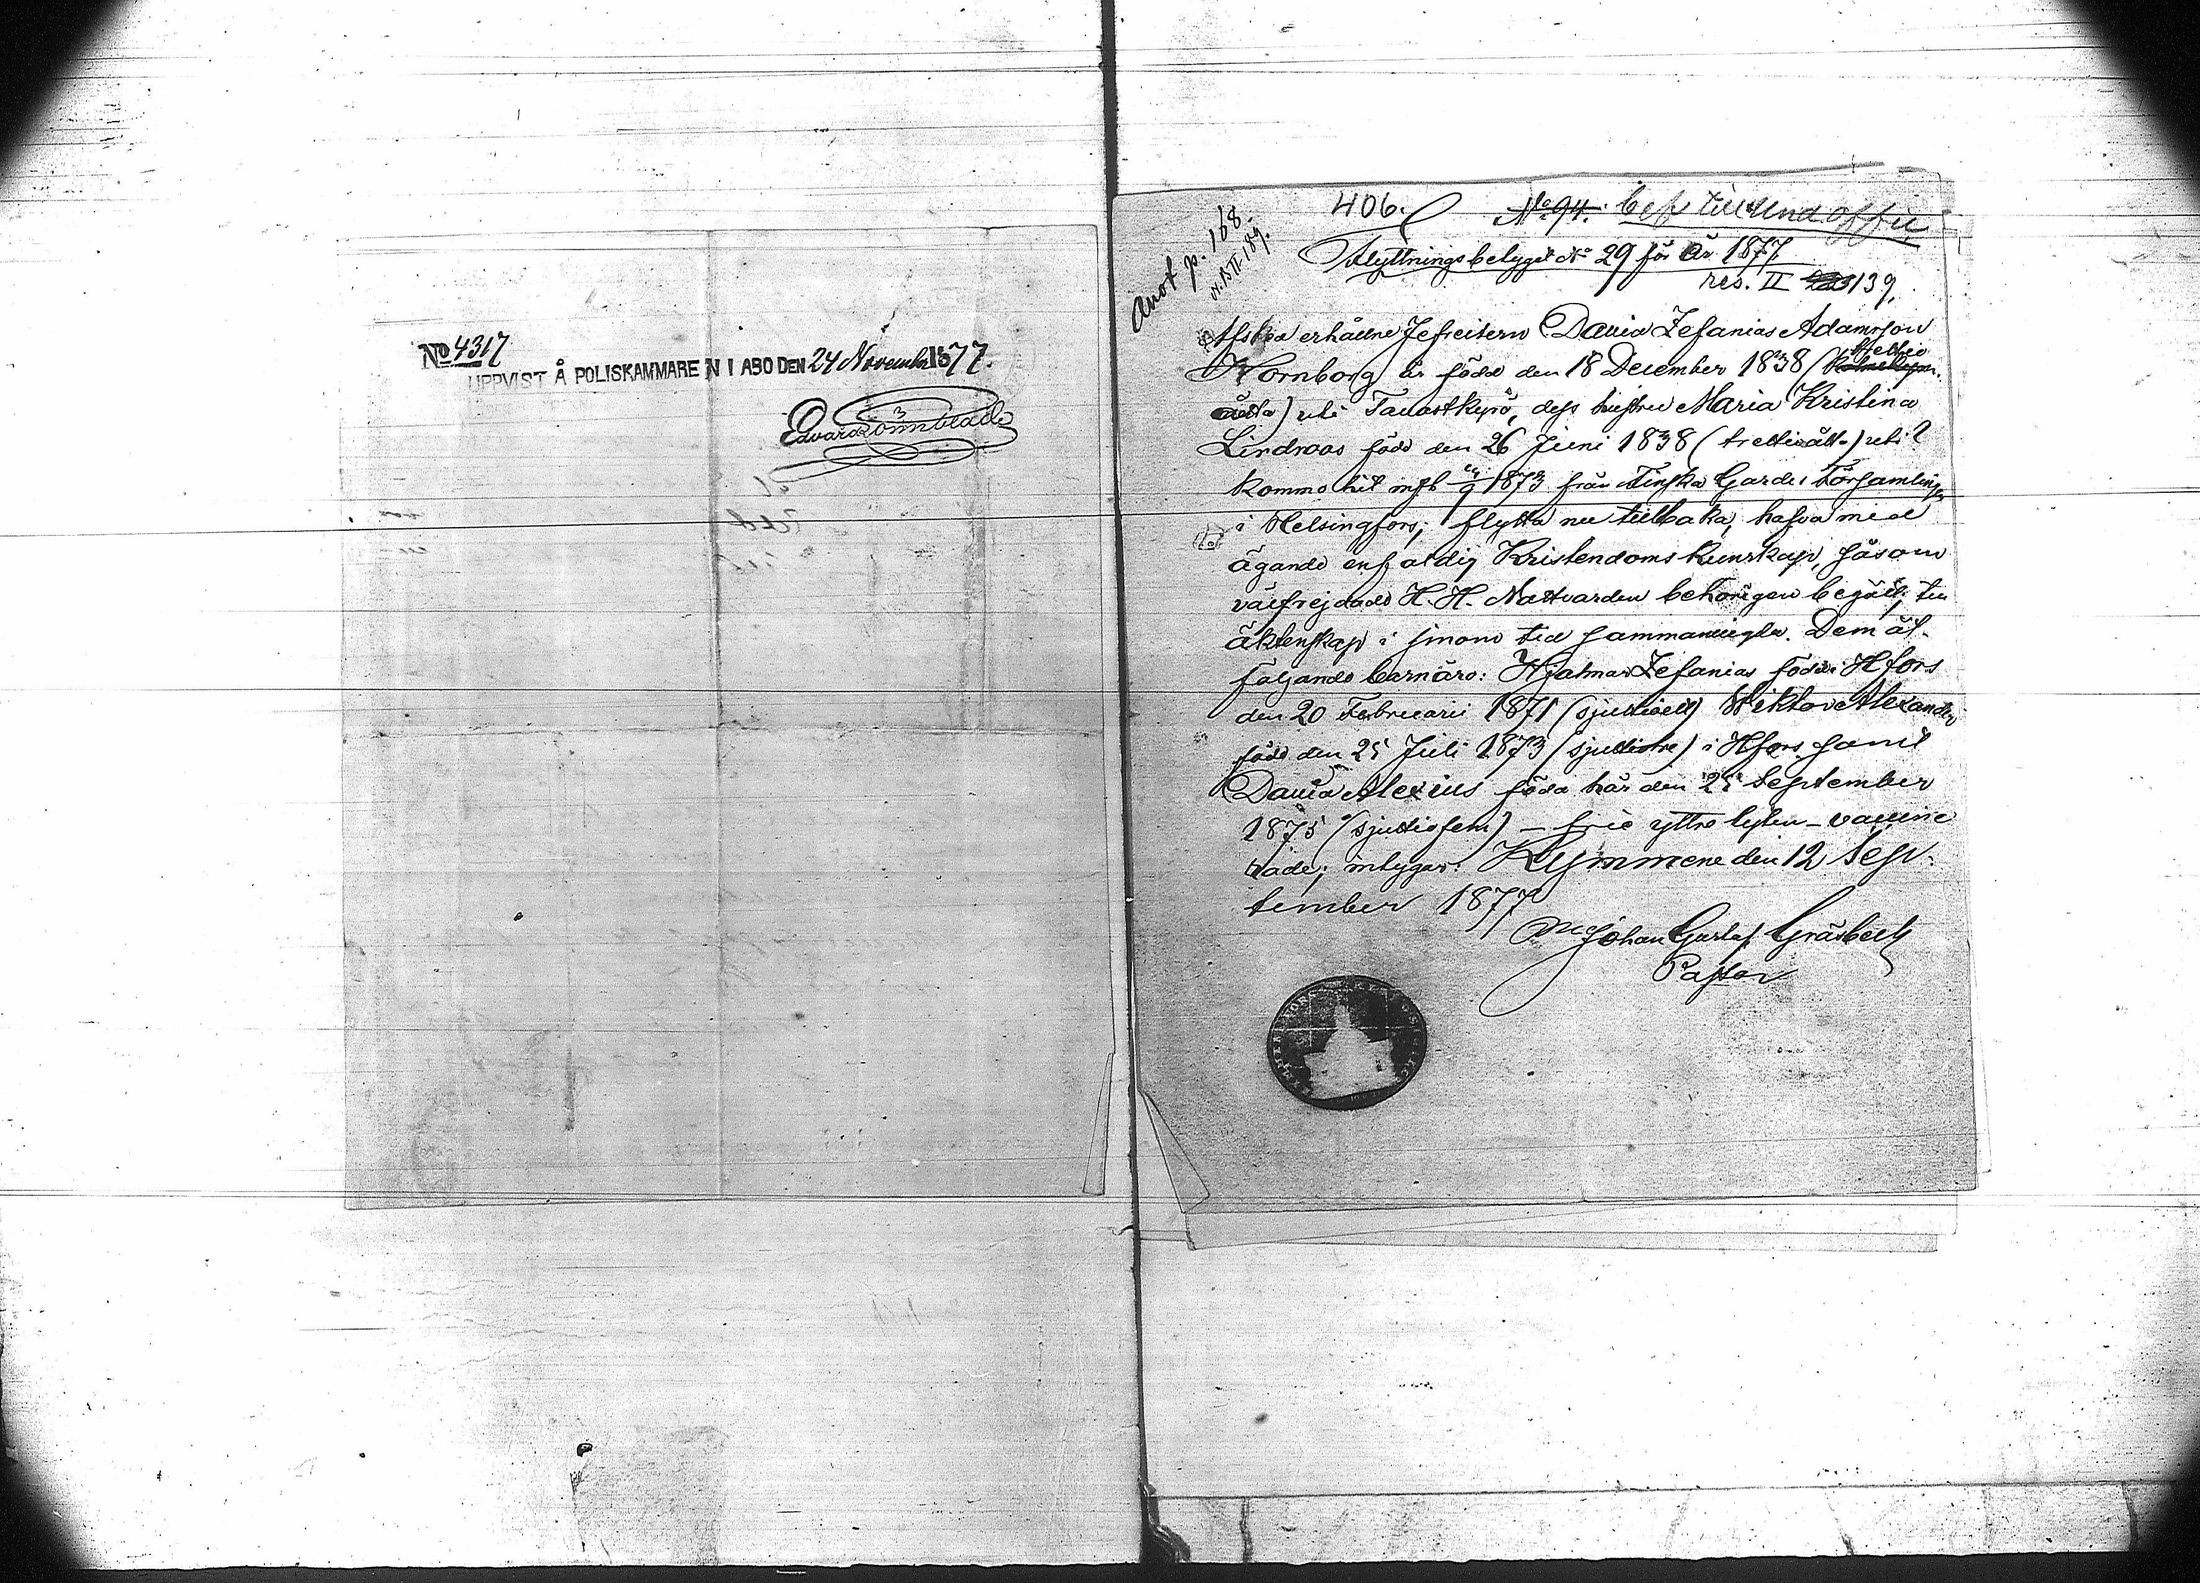 No 4317
UPPVIST Å POLISKAMMAREN I ABO DEN 24 November 1877.
Edvard Lönnblad
406.
No 94.
Anot p. 168.
Flyttningsbetyget No 29 för År 1877,
res. II 139,
Afsked erhållne Jefreitern David Zefanias Adamsson
Hornborg är född den 18 December 1838 (trettio
åtta) uti Tavastkyrö, dess hustru Maria Kristina
Lindroos född den 26 Juni 1838 (trettioåtta) uti ?
kommo hit 1873 från Finska Gardes Församlingen
i Helsingfors; flytta nu tillbaka, hafva med
ägande enfaldig Kristendoms kunskap, såsom
välfrejdade H. H. Nattvarden behörigen begått, till
äktenskap i sinom tid sammanvigda. Dem åt-
följande barn äro: Hjalmar Zefanias född i Hfors
den 20 Februarii 1871 (sjuttioett) Wiktor Alexander
född den 25 Juli 1873 (sjuttiotre) i Hfors samt
David Alexius född här den 25 September
1875 (sjuttiofem) – frie yttre lyten – vaccine
rade; intygar: Kymmene den 12 Sep-
tember 1877
Johan Gustaf Gräsbeck
Pastor